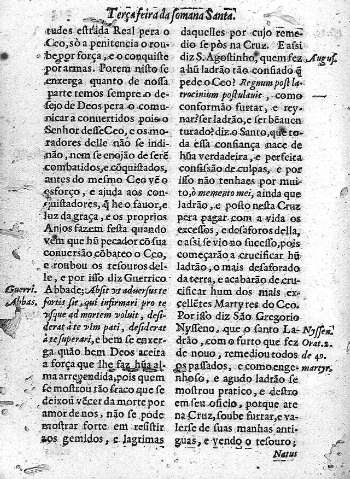 Terça feira da somana Santa.
tudes estrada Real pera o
Ceo, sò a penitencia o rou-
be por força, e o conquiste
por armas. Porem nisto se
enxerga quanto de nossa
parte temos sempre o de-
sejo de Deos pera o comu-
nicar a convertidos pois o
Senhor desse Ceo, e os mo-
radores delle não se indi-
não, nem se enojão de serẽ
combatidos, e cõquistados,
antes do mesmo Ceo vẽ o
esforço, e ajuda aos con-
quistadores, q̃ he o favor, e
luz da graça, e os proprios
Anjos fazem festa quando
vem que hũ pecador cõ sua
conversão cõbateo o Ceo,
e roubou os tesouros del-
le, e por isso diz Guerrico
Abbade; Absit ut adversus te
fortis sit, qui infirmari pro te
usque ad mortem voluit, desider-
at à te vim pati, desiderat
à te superari, e bem se enxer-
ga quão bem Deos aceita
a força que lhe faz hũa al-
ma arrependida, pois quem
se mostrou tão fraco que se
deixou vẽcer da morte por
amor de nos, não se pode
mostrar forte em resistir
aos gemidos, e lagrimas
Guerri.
Abbas.
daquelles por cujo reme-
dio se pòs na Cruz. E assi
diz S. Agostinho, quem fez
a hũ ladrão tão confiado q̃
pede o Ceo? Regnum post la-
trocinium postulavit, como
conformão furtar, e rey-
nar? ser ladrão, e ser bẽaven
turado? diz o Santo, que to-
da essa confiança nace de
hũa verdadeira, e perfeita
confissão de culpas, e por
isso não tenhaes por mui-
to, ò memento mei, ainda que
ladrão, e posto nesta Cruz
pera pagar com a vida os
excessos, e desaforos della,
e assi se vio no sucesso, pois
começarão a crucificar hũ
ladrão, o mais desaforado
da terra, e acabarão de cru-
cificar hum dos mais ex-
cellẽtes Martyres do Ceo.
Por isso diz São Gregorio
Nysseno, que o santo La-
drão, com o furto que fez
de nouo, remediou todos
os passados, e como enge-
nhoso, e agudo ladrão se
mostrou pratico, e destro
em seu oficio, porque atè
na Cruz, soube furtar, e va-
lerse de suas manhas anti-
guas, e vendo o tesouro;
Natus
August.
Nyssen.
Orat. 2.
de 40.
martyr.